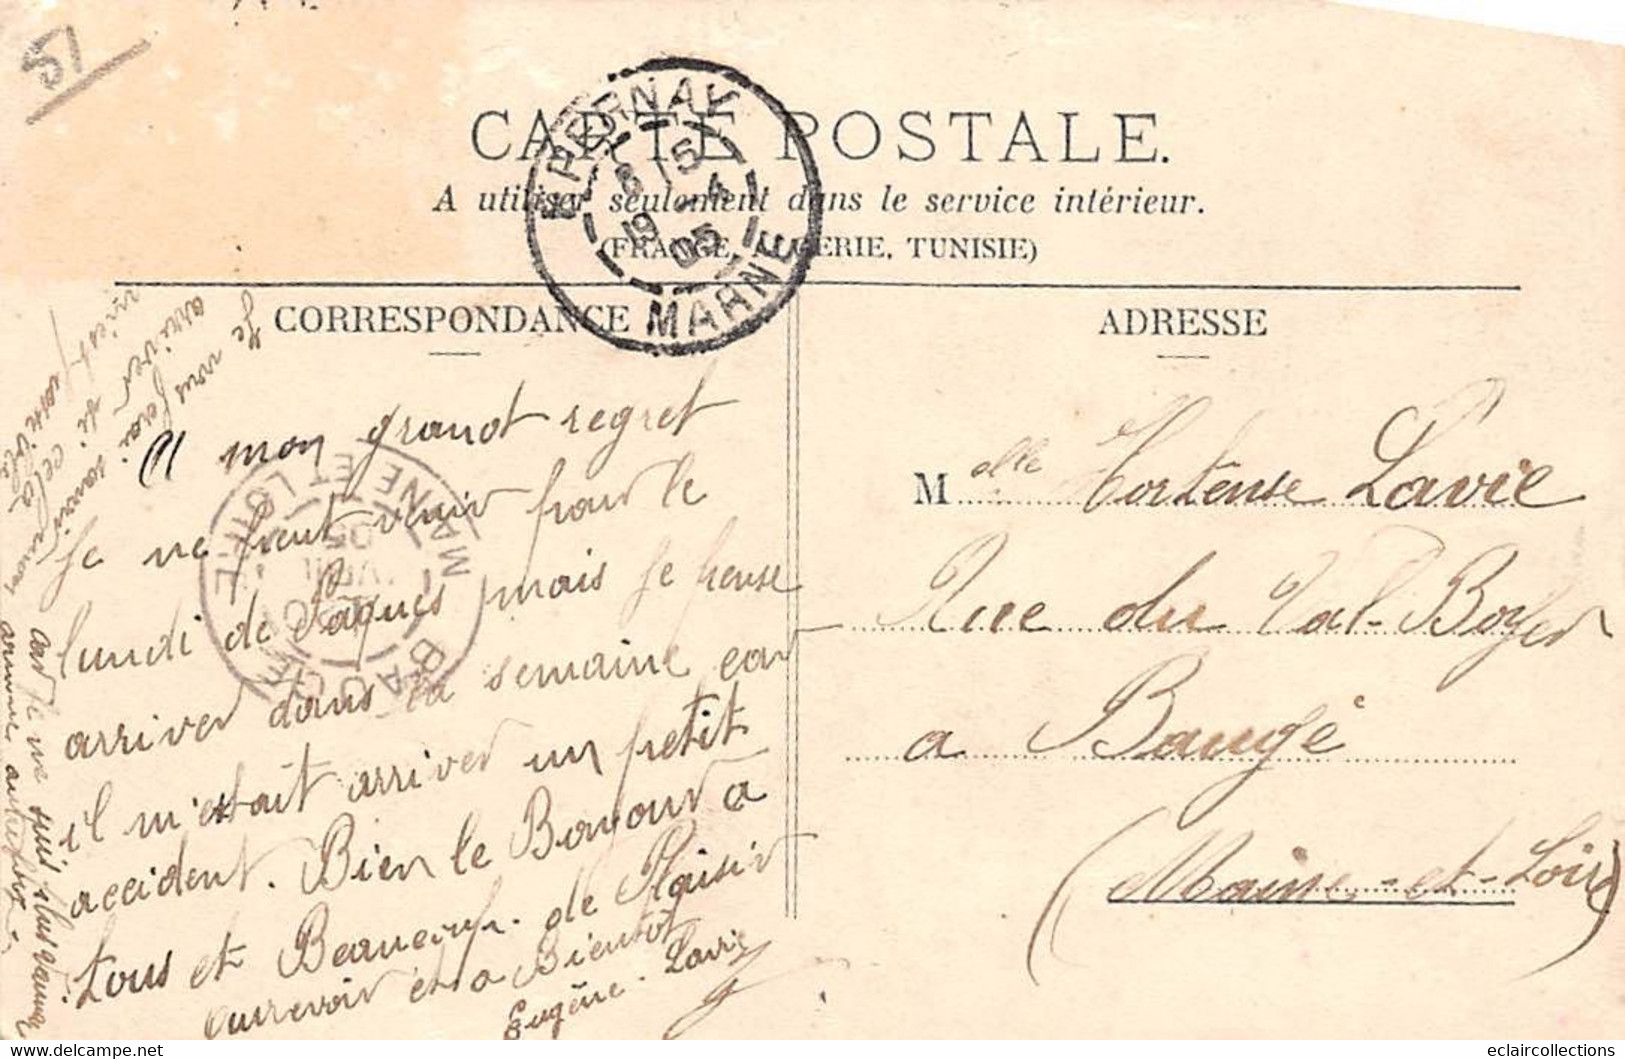 51
CARTE POSTALE.
A utiliser seulement dans le service intérieur.
(FRANCE, ALGERIE, TUNISIE)
EPERNAY
5
19 - 4
05
MARNE
CORRESPONDANCE
ADRESSE
A mon grand regret
Je ne peut venir pour le
lundi de Pâques mais je pense
arriver dans la semaine car
il m'estait arriver un petit
accident. Bien le Bonjour a
tous et Beaucoup de Plaisir
aurevoir et a Bientôt
Eugène Lavie
Je vous ferai savoir
arriver si cela
n'est possible
car je ne suis plus
comme autrefois
BAUGÉ
MAINE ET LOIRE
Melle Hortense Lavie
Rue du Val-Boyer
a Baugé
(Maine-et-Loire)
delcampe.net
eclaircollections